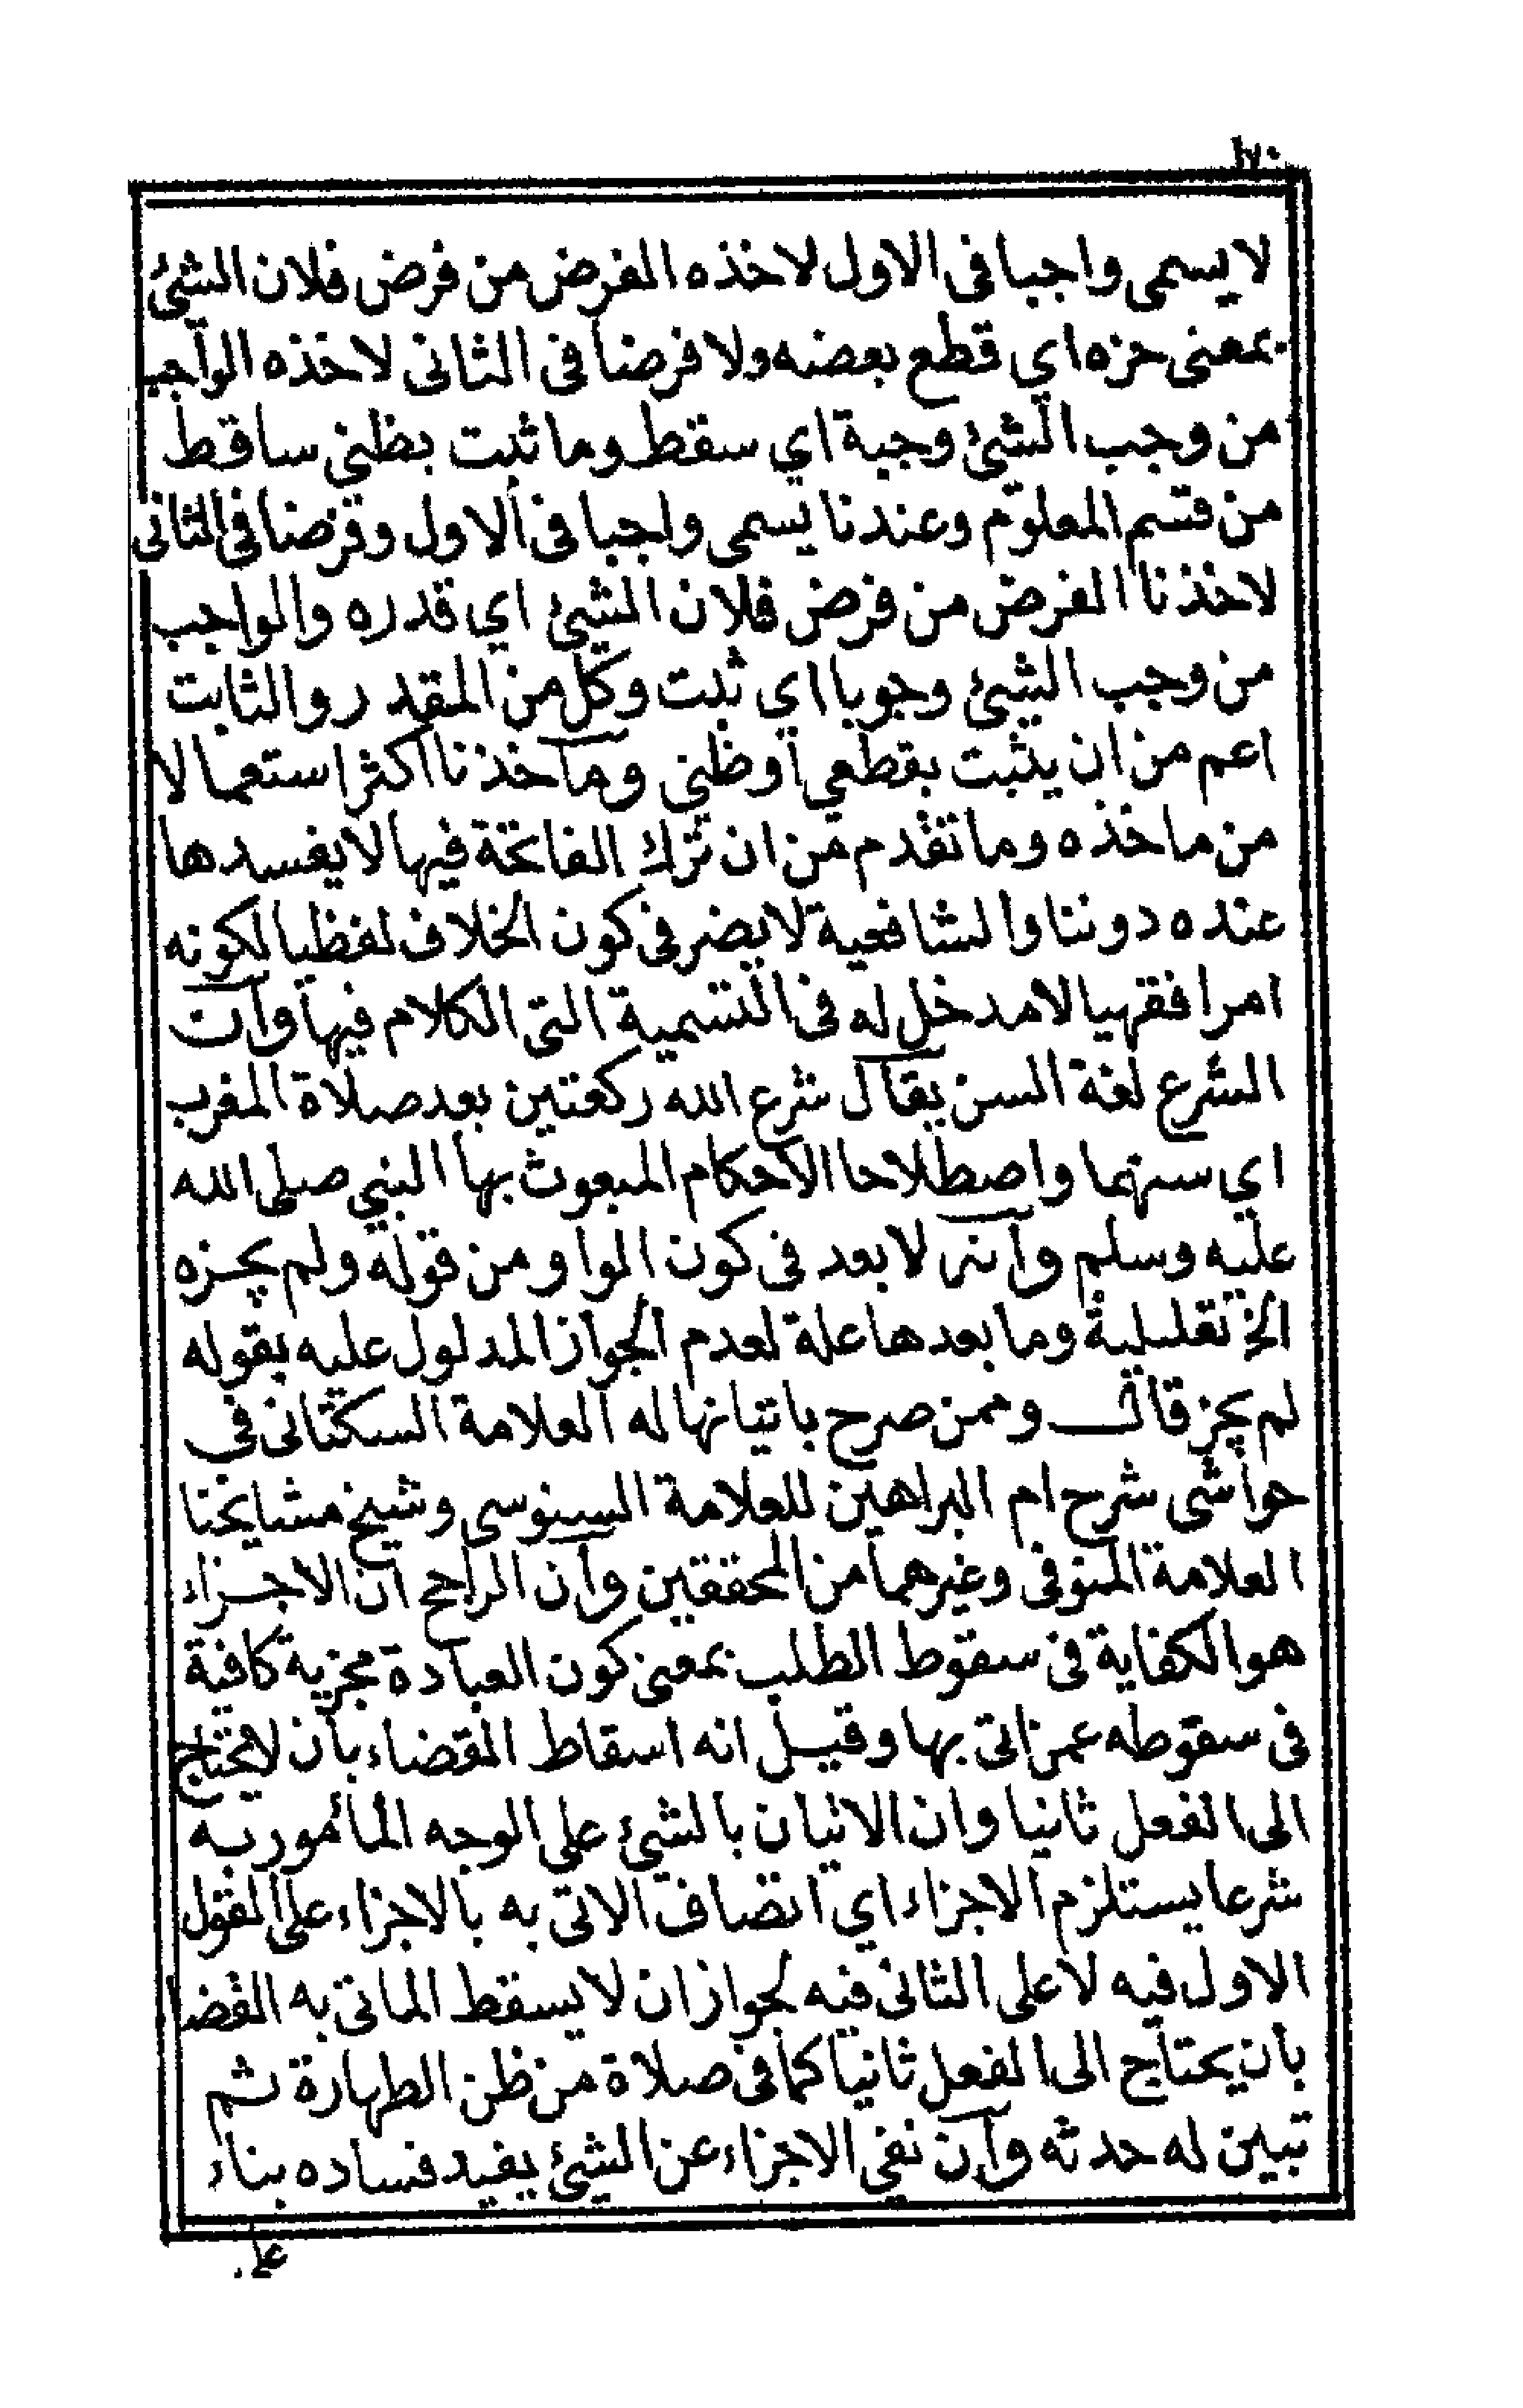 ١٧٠
لا يسمى واجبا فى الاول لاخذه الفرض من فرض فلان الشئ
بمعنى حزه اي قطع بعضه ولا فرضا فى الثانى لاخذه الواجب
من وجب الشئ وجبة اي سقط وما ثبت بظني ساقط
من قسم المعلوم وعندنا يسمى واجبا فى الاول وفرضا فى الثانى
لاخذنا الفرض من فرض فلان الشيئ اي قدره والواجب
من وجب الشيئ وجوبا اي ثبت وكل من المقدر والثابت
اعم من ان يثبت بقطعي أو ظني ومأخذنا اكثر استعمالا
من ماخذه وما تقدم من ان ترك الفاتحة فيها لا يفسدها
عنده دوننا والشافعية لا يضر فى كون الخلاف لفظيا لكونه
امرا فقهيا لا مدخل له فى التسمية التى الكلام فيها وأن
الشرع لغة السن يقال شرع الله ركعتين بعد صلاة المغرب
اي سنهما واصطلاحا الأحكام المبعوث بها النبي صلى الله
عليه وسلم وأنه لا بعد فى كون الواو من قوله ولم يجزه
الخ تعليلية وما بعدها علة لعدم الجواز المدلول عليه بقوله
لم يجز قال وممن صرح باتيانها له العلامة السكتانى في
حواشى شرح ام البراهين للعلامة السنوسى وشيخ مشايخنا
العلامة المنوفى وغيرهما من المحققين وأن الراجح ان الاجزاء
هو الكفاية فى سقوط الطلب بمعنى كون العبادة مجزية كافية
فى سقوطه عمن اتى بها وقيل انه اسقاط القضاء بأن لا يحتاج
الى الفعل ثانيا وان الاتيان بالشيئ على الوجه المأمور به
شرعا يستلزم الاجزاء اي اتصاف الاتى به بالاجزاء على القول
الاول فيه لا على الثانى فيه لجواز ان لا يسقط الماتى به القضا
بأن يحتاج الى الفعل ثانيا كما فى صلاة من ظن الطهارة ثم
تبين له حدثه وأن نفي الاجزاء عن الشيئ يفيد فساده بناء
على